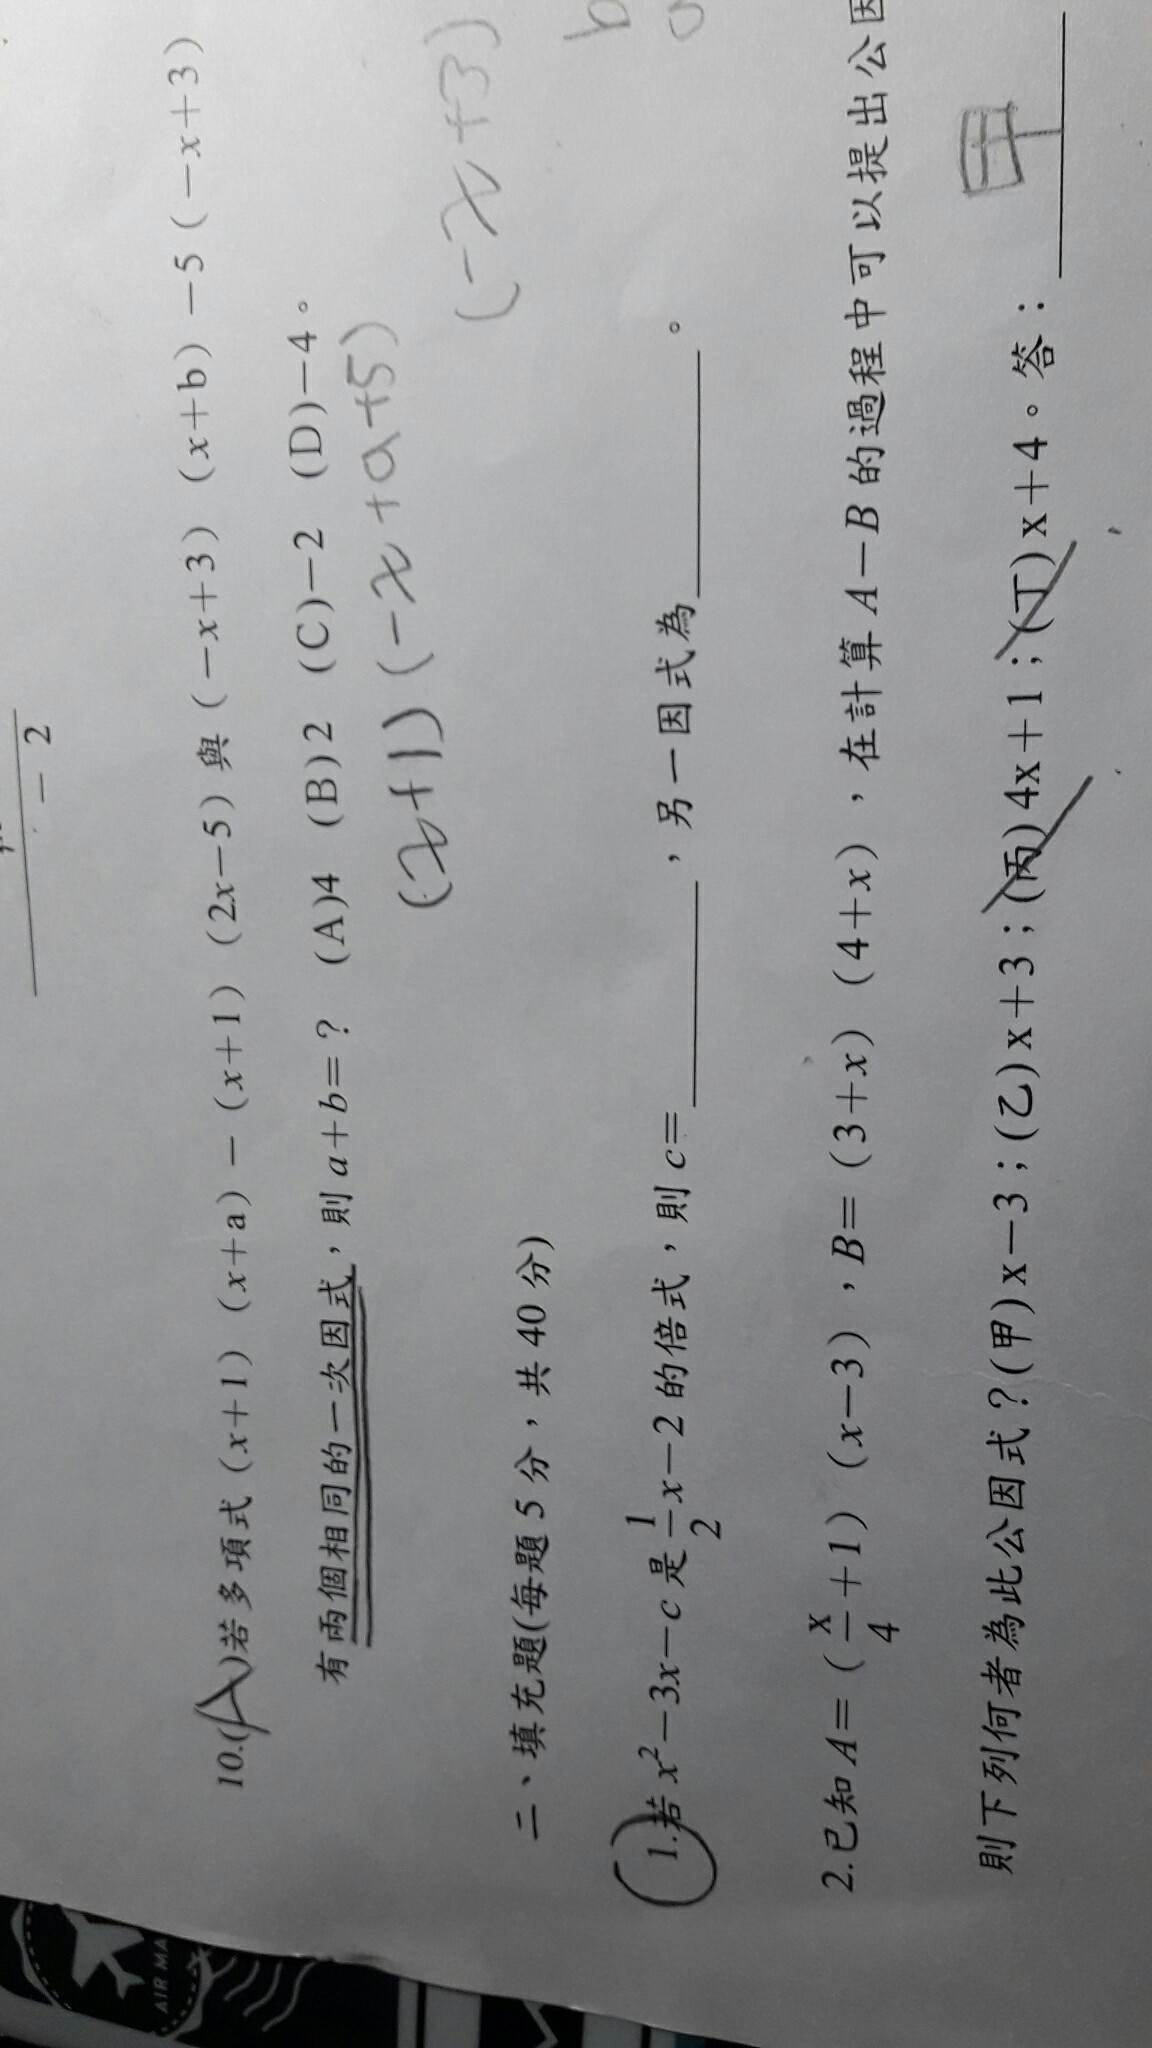 －2
10.(A)若多項式(x+1)(x+a)－(x+1)(2x－5)與(－x+3)(x+b)－5(－x+3)
有兩個相同的一次因式，則a+b=？ (A)4 (B)2 (C)－2 (D)－4。
(x+1)(-x+a+5)
(-x+3)
二、填充題(每題5分，共40分)
1.若x²－3x－c是1/2x－2的倍式，則c=________，另一因式為________。
2.已知A=(x/4+1)(x－3)，B=(3+x)(4+x)，在計算A－B的過程中可以提出公因
則下列何者為此公因式？(甲)x－3；(乙)x+3；(丙)4x+1；(丁)x+4。答：甲
AIR MA